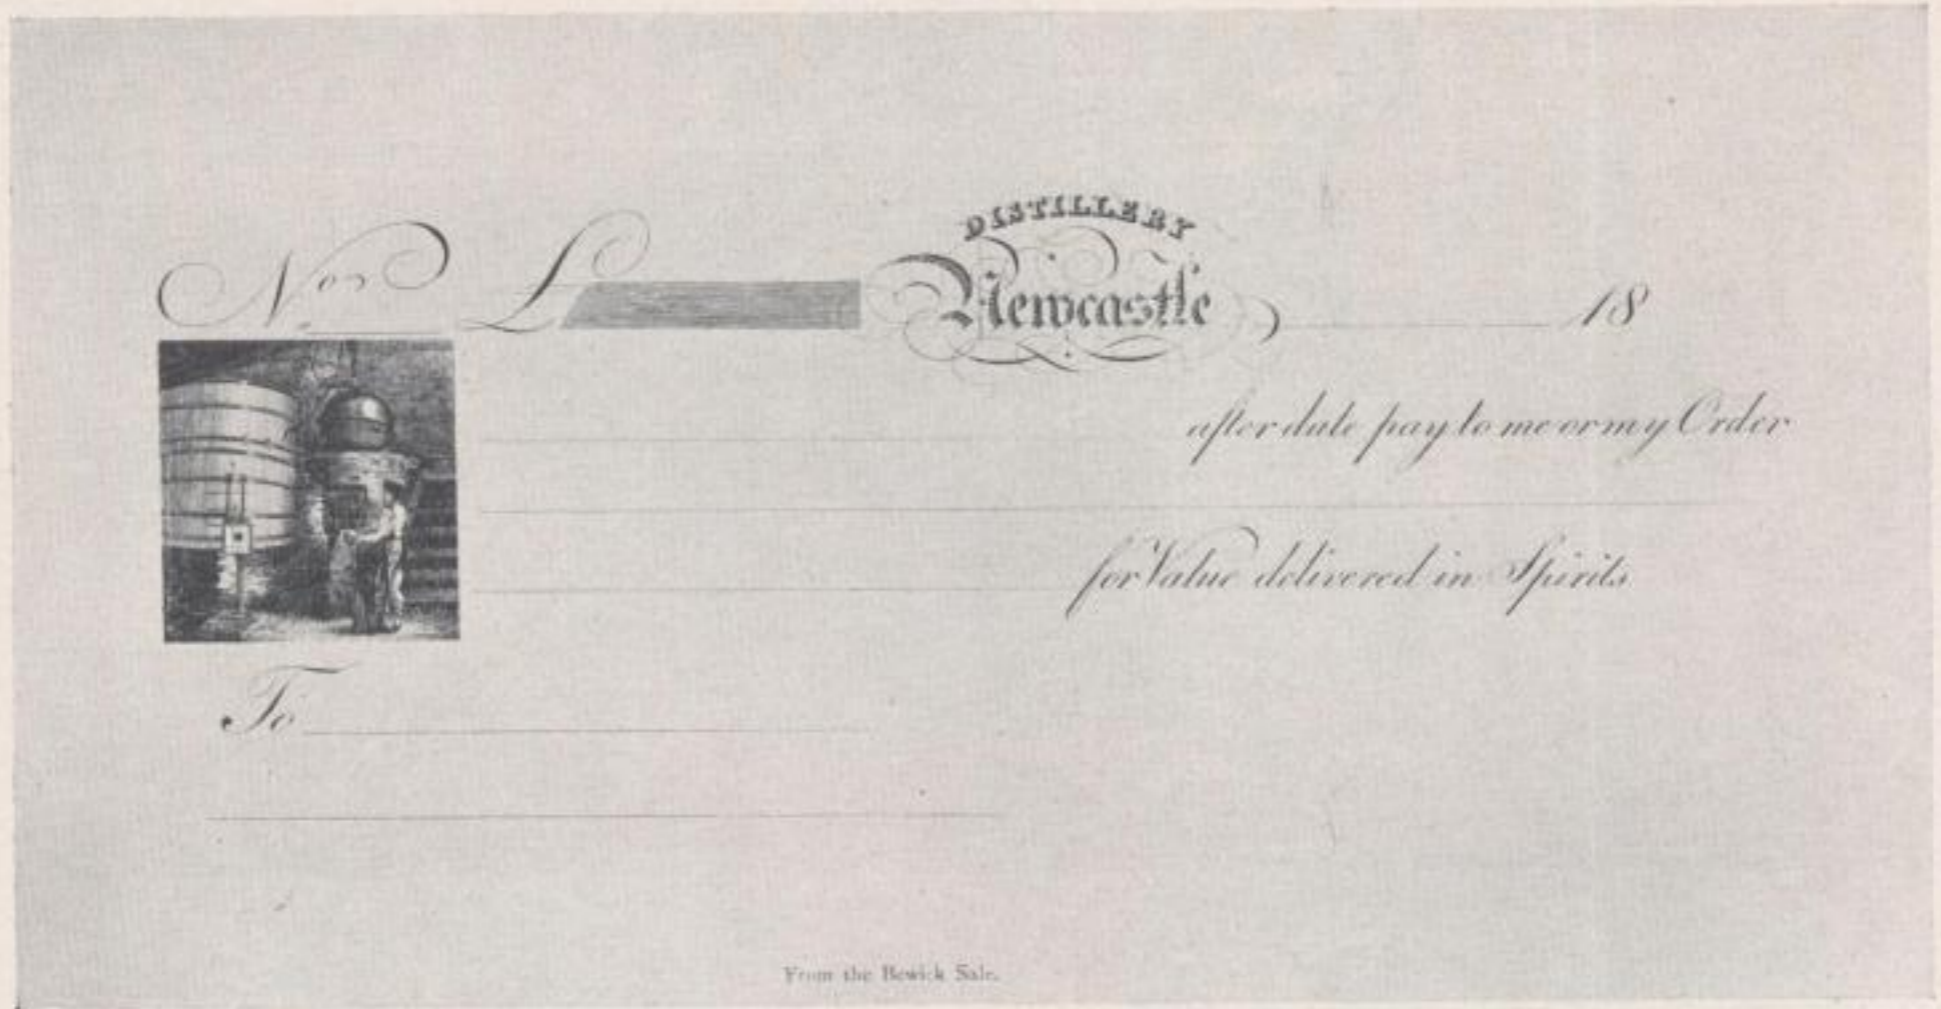 DISTILLERY
No. £ Newcastle 18
after date pay to me or my Order
for Value delivered in Spirits
To
From the Bewick Sale.